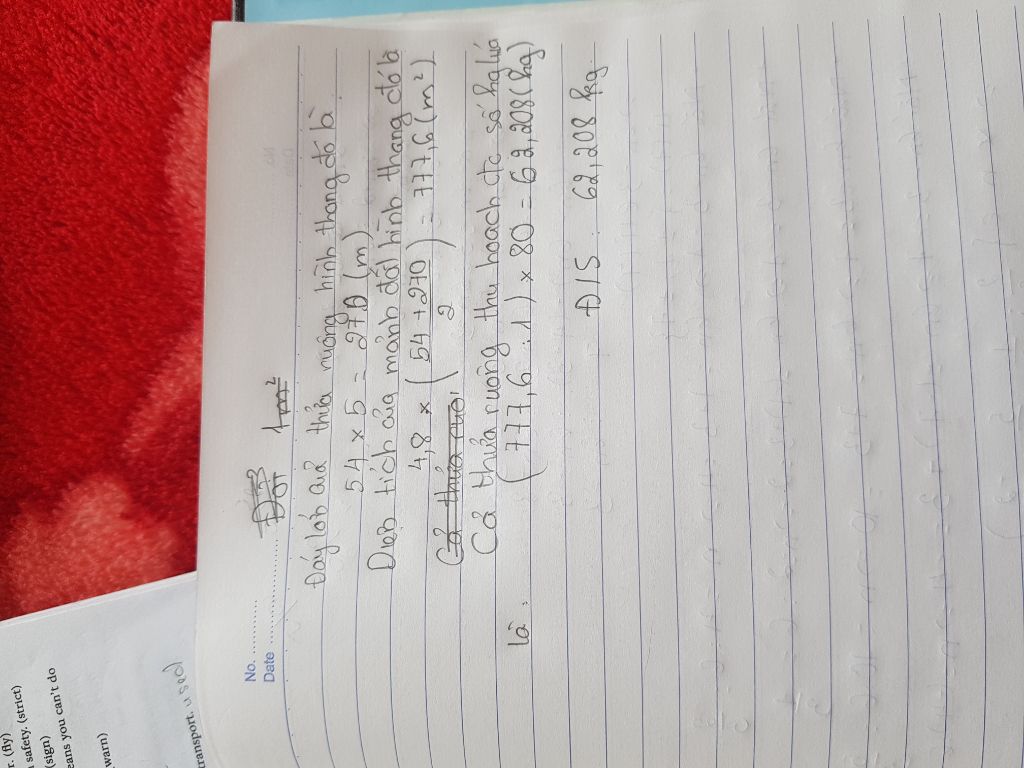 r. (fly)
safety. (strict)
(sign)
eans you can't do
warn)
transport. used
No. ............
Date ........................
1m²
Đáy lớn của thửa ruộng hình thang đó là
54 x 5 = 270 (m)
Diện tích của mảnh đất hình thang đó là
4,8 x ( 54 + 270 / 2 ) = 777,6 (m²)
(Cả thửa ruộ
Cả thửa ruộng thu hoạch đc số kg lúa
là: (777,6 : 1) x 80 = 62,208 (kg)
Đ/S : 62,208 kg